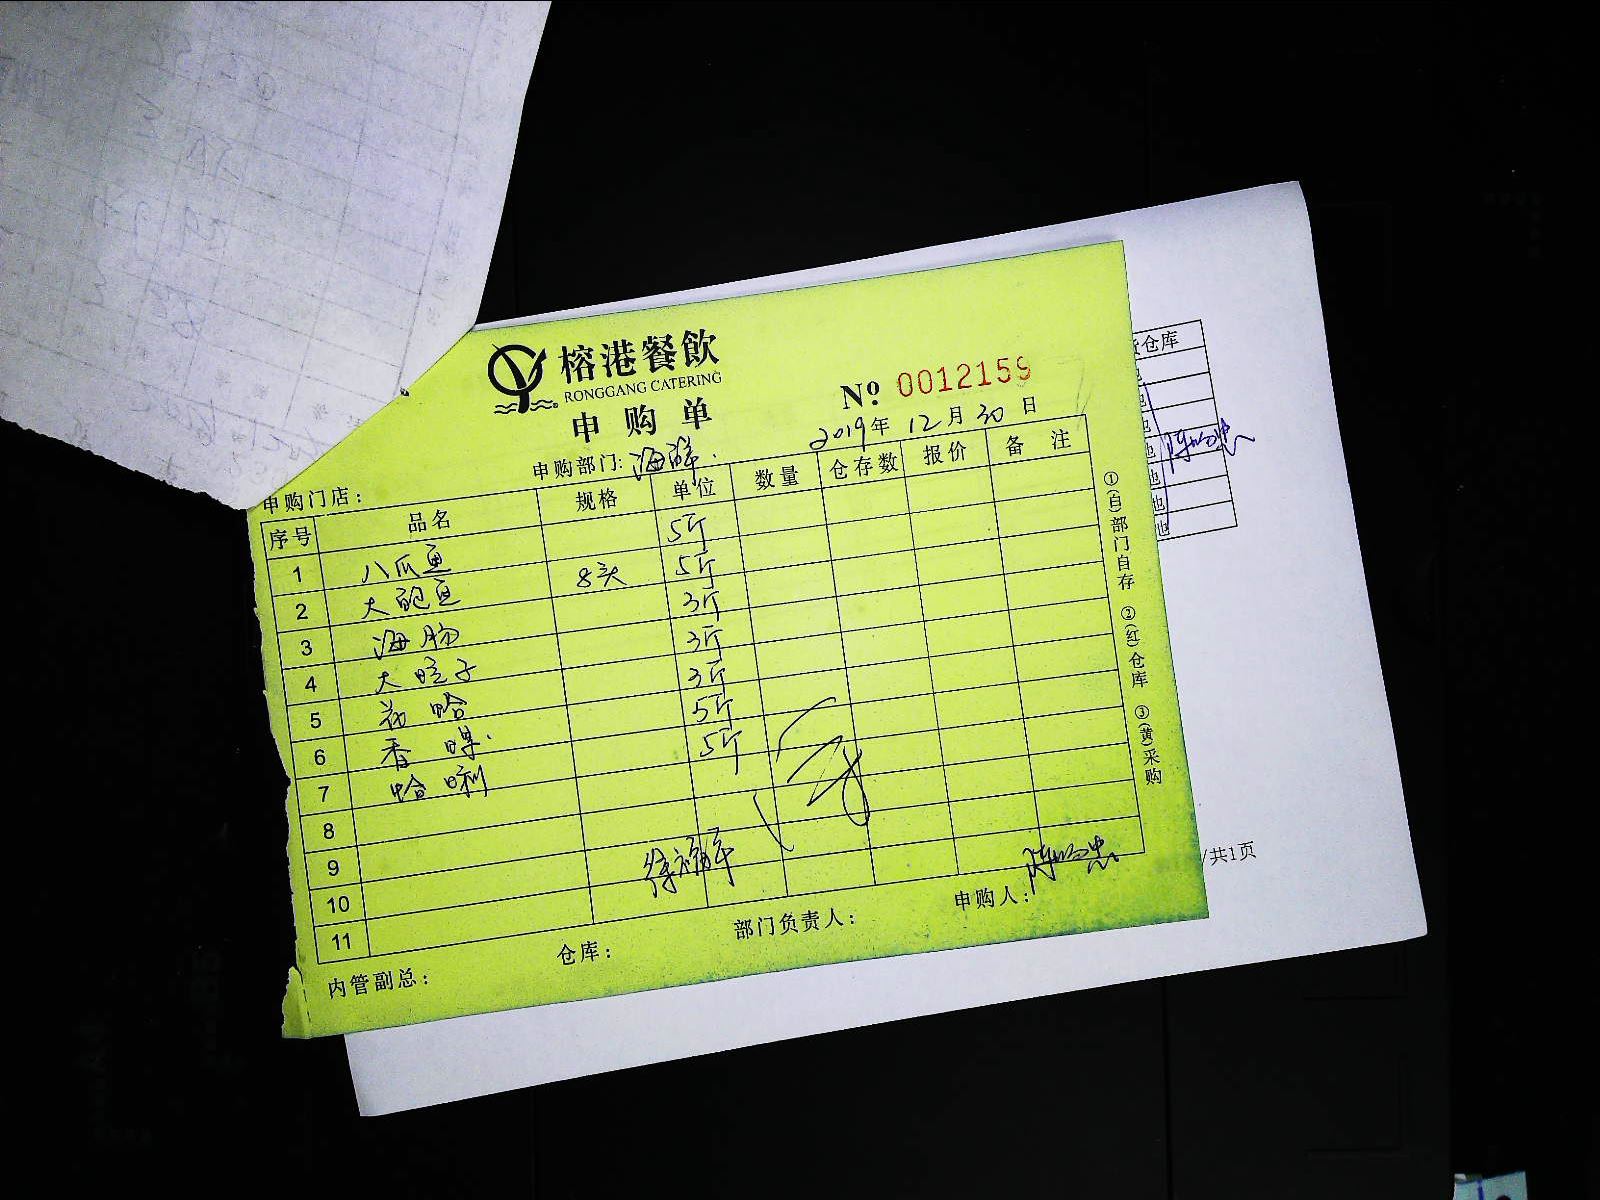 榕港餐飲
RONGGANG CATERING
申购单
№ 0012159
2019年 12月 30日
申购门店: 申购部门: 海鲜
序号 品名 规格 单位 数量 仓存数 报价 备注
1 八爪鱼 5斤
2 大鲍鱼 8头 5斤
3 海肠 3斤
4 大蛏子 3斤
5 花蛤 3斤
6 香螺 5斤
7 蛤蜊 5斤
8
9
10
11
内管副总: 仓库: 部门负责人: 申购人:
①(白)部门自存 ②(红)仓库 ③(黄)采购
仓库
/共1页